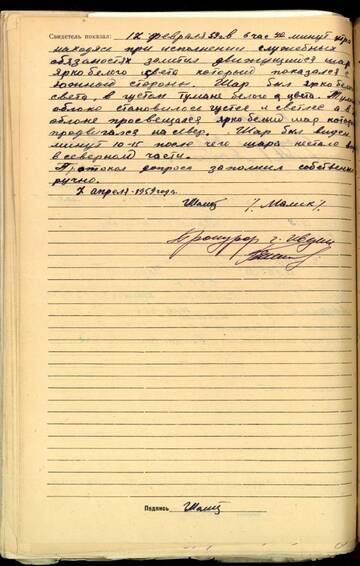 Свидетель показал: 17 февраля 59 г. в 6 час 40 минут утра
находясь при исполнении служебных
обязаностях заметил движущийся шар
ярко белого цвета который показался с
южной стороны Шар был ярко белого
света, в густом тумане белого цвета.
облако становилось гуще и светлее а в
облаке просвещался ярко белый шар который
продвигался на север. Шар был виден
минут 10-15 после чего шара не стало
в северной части.
Протокол допроса заполнил собственно
ручно.
7 апреля-1959 года.
/.
Прокурор г. Ивдель
Подпись